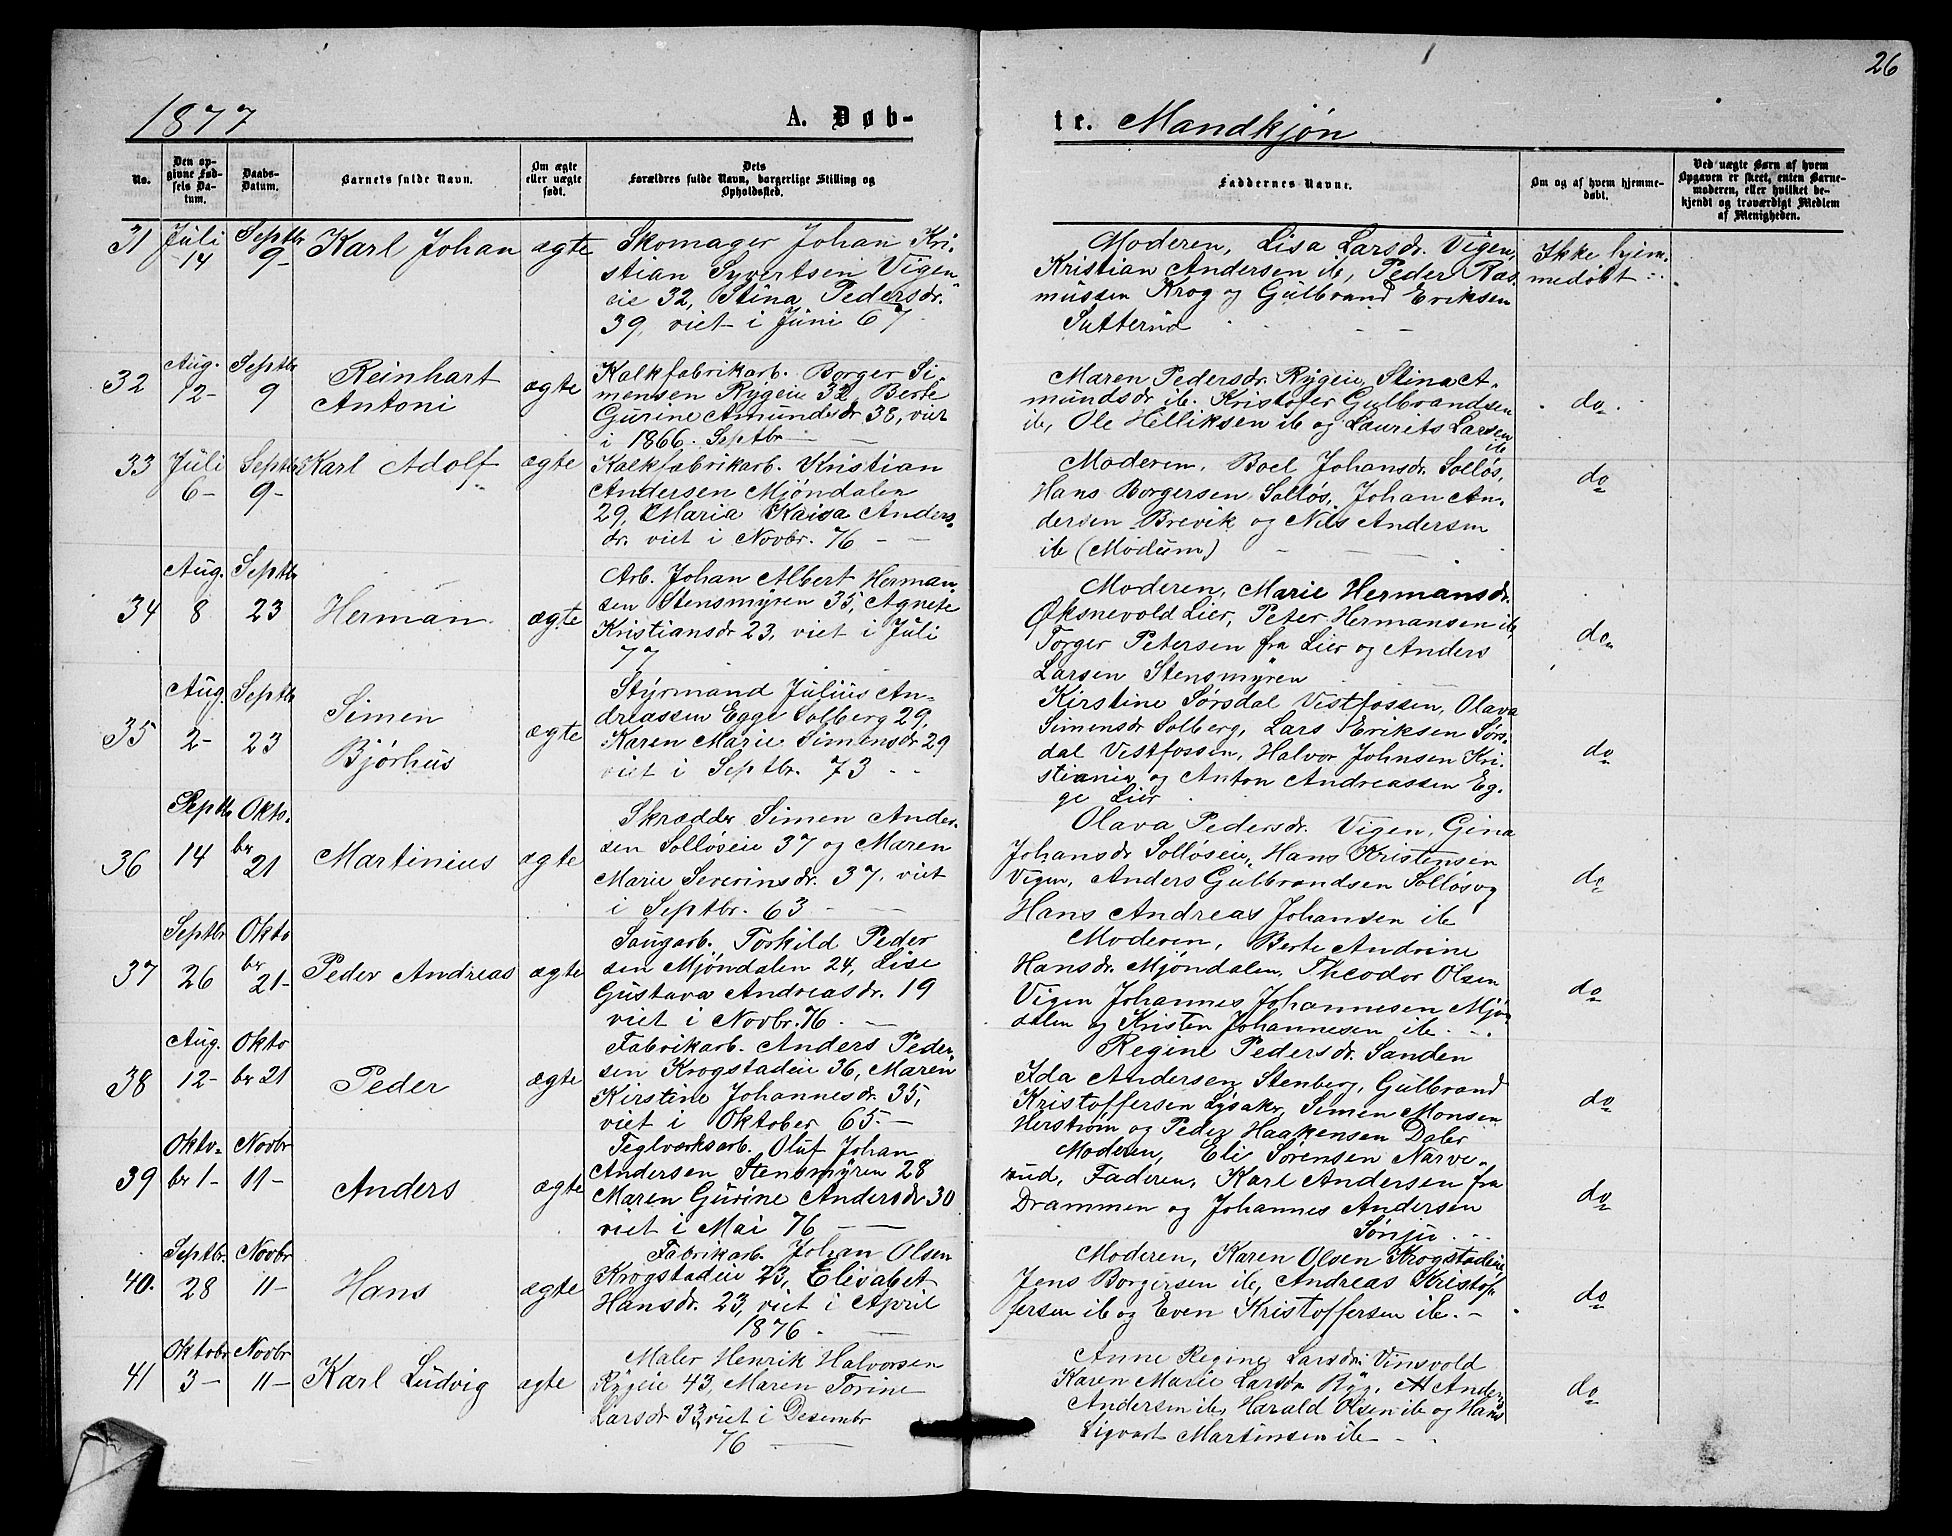 26
1877
A. Døb-
te. Mandkjøn
No.
Den opgivne Fødsels Datum.
Daabs-Datum.
Barnets fulde Navn.
Om ægte eller uægte født.
Dets Forældres fulde Navn, borgerlige Stilling og Opholdssted.
Faddernes Navne.
Om og af hvem hjemmedøbt.
Ved uægte Børn af hvem Opgaven er skeet, enten Barnemoderen, eller hvilket bekjendt og troværdigt Medlem af Menigheden.
31 Juli 14 Septbr 9- Karl Johan ægte
Skomager Johan Kri-
stian Syvertsen Vigen
eie 32, Stina Pedersdr.
39, viet i Juni 67.
Moderen, Lisa Larsdr. Vigen,
Kristian Andersen ib, Peder Ras-
mussen Krog og Gulbrand Eriksen
Sutterud
Ikke hjem-
medøbt
32 Aug. 12- Septbr 9 Reinhart
Antoni ægte
Kalkfabrikarb. Borger Si-
mensen Rygeie 32, Berte
Gurine Amundsdr 38, viet
i 1866. Septbr
Maren Pedersdr. Rygeie, Stina A-
mundsdr ib. Kristofer Gulbrandsen
ib, Ole Helliksen ib og Laurits Larsen
ib
do
33 Juli 6- Septbr 9- Karl Adolf ægte
Kalkfabrikarb. Kristian
Andersen Mjøndalen
29, Maria Kaisa Anders-
dr. viet i Novbr. 76
Moderen, Boel Johansdr. Solløs,
Hans Borgersen Solløs, Johan An-
dersen Brevik og Nils Andersen
ib (Modum)
do
34 Aug. 8 Septbr 23 Herman ægte
Arb. Johan Albert Herman-
sen Stensmyren 35, Agnete
Kristiansdr 23, viet i Juli
77
Moderen, Marie Hermansdr.
Øksnevold Lier, Peter Hermansen ib,
Torger Petersen fra Lier og Anders
Larsen Stensmyren
do
35 Aug. 2- Septbr 23 Simen
Bjørhus ægte
Styrmand Julius An-
dreassen Egge Solberg 29,
Karen Marie Simensdr 29
viet i Septbr. 73
Kirstine Sørsdal Vestfossen, Olava
Simensdr Solberg, Lars Eriksen Sørs-
dal Vestfossen, Halvor Johnsen Kri-
stiania og Anton Andreassen Eg-
ge Lier
do
36 Septbr 14 Okto-
br 21 Martinius ægte
Skrædder Simen Ander-
sen Solløseie 37 og Maren
Marie Severinsdr. 37, viet
i Septbr. 63
Olava Pedersdr. Vigen, Gina
Johansdr Solløseie, Hans Kristensen
Vigen, Anders Gulbrandsen Solløs og
Hans Andreas Johansen ib
do
37 Septbr 26 Okto
br 21- Peder Andreas ægte
Saugarb. Torkild Peder
sen Mjøndalen 24, Lise
Gustava Andreasdr. 19
viet i Novbr. 76.
Moderen, Berte Andrine
Hansdr. Mjøndalen, Theodor Olsen
Vigen Johannes Johannesen Mjøn
dalen og Kristen Johannesen ib
do
38 Aug. 12- Okto
br 21 Peder ægte
Fabrikarb. Anders Peder-
sen Krogstadeie 36, Maren
Kirstine Johannesdr. 35,
viet i Oktober 65.
Regine Pedersdr. Sanden
Ida Andersen Stenberg, Gulbrand
Kristoffersen Lysaker, Simen Monsen
Herstrøm og Peder Haakensen Daler
do
39 Okto-
br 1- Novbr 11- Anders ægte
Teglværksarb. Oluf Johan
Andersen Stensmyren 28
Maren Gurine Andersdr 30
viet i Mai 76
Moderen, Eli Sørensen Narve-
rud, Faderen, Karl Andersen fra
Drammen og Johannes Andersen
Sønju
do
40. Septbr. 28 Novbr 11- Hans ægte
Fabrikarb. Johan Olsen
Krogstadeie 23, Elisabet
Hansdr. 23, viet i April
1876.
Moderen, Karen Olsen Krogstadeie
Jens Borgersen ib, Andreas Kristof-
fersen ib og Even Kristoffersen ib.
do
41 Oktobr 3- Novbr 11- Karl Ludvig ægte
Maler Henrik Halvorsen
Rygeie 43, Maren Torine
Larsdr 33, viet i Desembr
76
Anne Regine Larsdr. Vinsvold
Karen Marie Larsdr Ryg, Anders
Andersen ib, Harald Olsen ib og Hans
Sigvart Martinsen ib
do